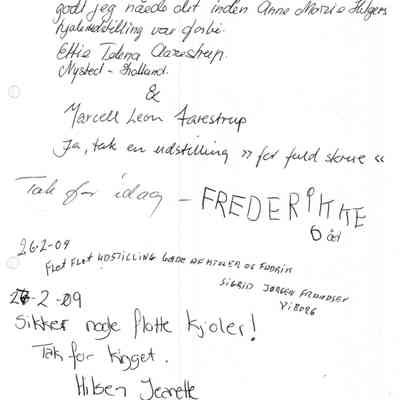 godt jeg nåede det inden Anne Marie Helgers
kjoleudstilling var forbi.
Ellie Telena Aarestrup.
Nysted - Lolland.
&
Marcell Leon Aarestrup
Ja, tak en udstilling " for fuld skrue "
Tak for idag - FREDERIKKE
6 år
26-2-09
FLOT FLOT UDSTILLING BÅDE AF KJOLER OG
SIGRID JØRGEN FRANDSEN
VIBORG
27-2-09
Sikker nogle flotte kjoler!
Tak for kigget.
Hilsen Jeanette